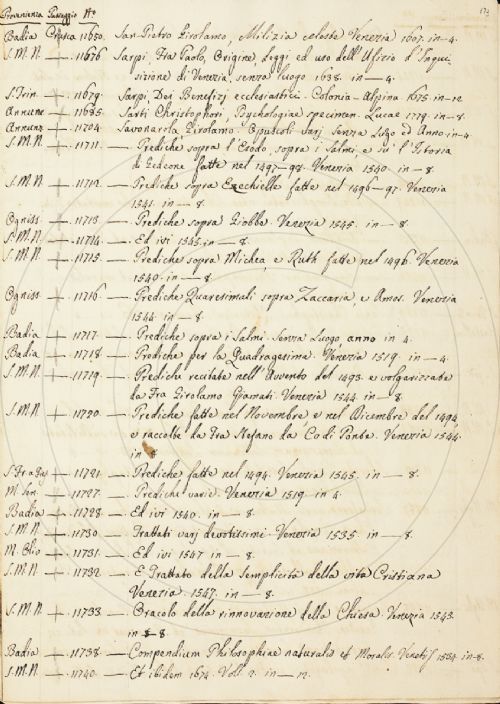 Provenienza Passaggio N.º 173
Badia Crusca 11650. San Pietro Girolamo, Milizia celeste Venezia 1607. in-4.
S.M.N. + 11676 Sarpi, Fra Paolo, Origine, Leggi ed uso dell'Ufizio d'Inqui
sizione di Venezia senza luogo 1638. in — 4.
S. Trin. + 11679. Sarpi, Dei Benefizj ecclesiastici. Colonia-Alpina 1675 in-12
Annunz + 11685. Sarti Christophori, Psychologiae specimen. Lucae 1779. in-8.
Annunz + 11704. Savonarola Girolamo. Opuscoli varj. Senza Luogo ed Anno in-4.
S.M.N. + 11711. — Prediche sopra l'Esodo, sopra i Salmi, e su l'Istoria
di Gedeone fatte nel 1497-98. Venezia 1540. in — 8.
S.M.N. + 11712. — Prediche sopra Ezechielle fatte nel 1496-97. Venezia
1541. in — 8.
Ogniss. + 11713. — Prediche sopra Giobbe. Venezia 1545. in — 8.
S.M.N. + 11714. — Ed ivi 1545. in — 8.
S.M.N. + 11715. — Prediche sopra Michea, e Ruth fatte nel 1496. Venezia
1540. in — 8.
Ogniss. + 11716. — Prediche Quaresimali sopra Zaccaria, e Amos. Venezia
1544. in — 8.
Badia + 11717. — Prediche sopra i Salmi. Senza Luogo, anno in 4.
Badia + 11718 — Prediche per la Quadragesima. Venezia 1519. in — 4.
S.M.N. + 11719. — Prediche recitate nell'Avvento del 1493. e volgarizzate
da Fra Girolamo Giannoti. Venezia 1544 in — 8.
S.M.N. + 11720. — Prediche fatte nel Novembre, e nel Dicembre del 1494,
e raccolte da Fra Stefano da Co di Ponte. Venezia 1544.
in 8
+ 11721. — Prediche fatte nel 1494. Venezia 1545. in — 8.
+ 11727. — Prediche varie. Venezia 1519. in 4.
Badia + 11728. — Ed ivi 1540. in — 8.
S.M.N. + 11730 — Trattati varj devotissimi. Venezia 1535. in — 8.
+ 11731. — Ed ivi 1547 in — 8.
S.M.N. + 11732. — E Trattato della Semplicità della vita Cristiana
Venezia. 1547. in — 8.
S.M.N. + 11733 — Oracolo della rinnovazione della Chiesa. Venezia 1543.
in — 8
Badia + 11738. — Compendium Philosophiae naturalis et Moralis. Venetijs 1534. in-8.
S.M.N. + 11740. — Et ibidem 1674. Voll. 2. in — 12.